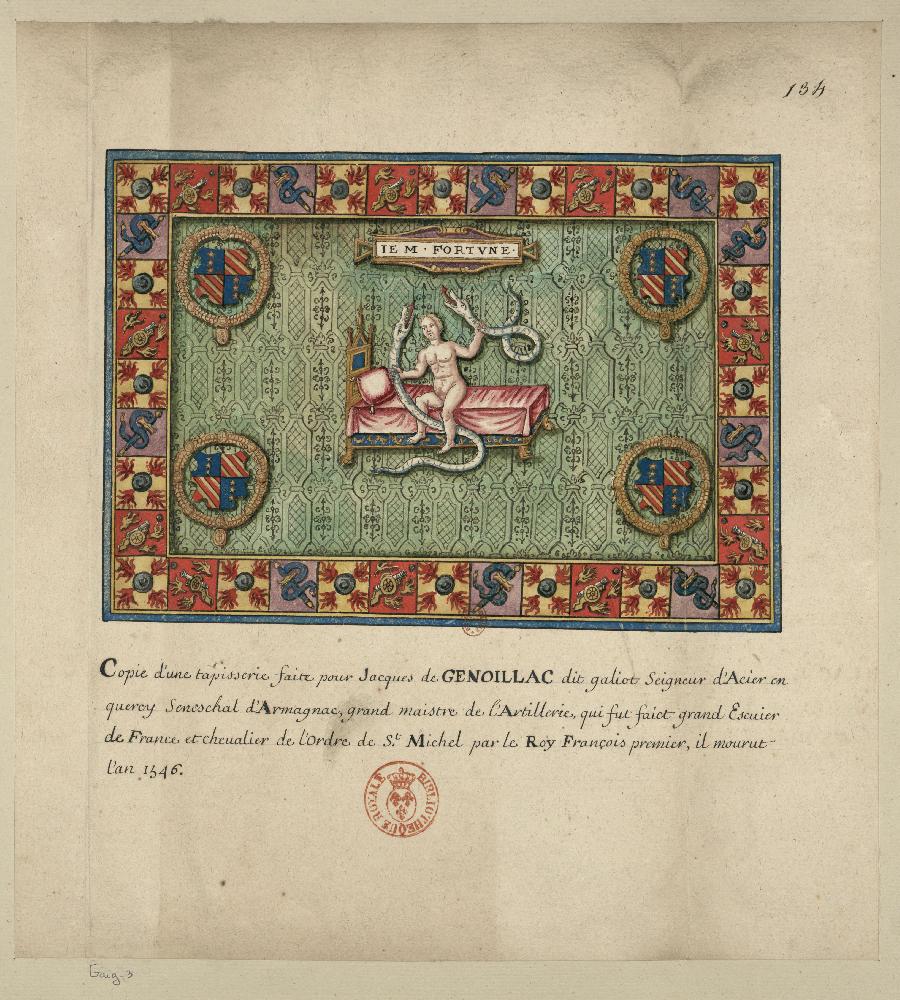 134
IE M · FORTVNE ·
Copie d'une tapisserie faite pour Jacques de GENOILLAC dit galiot Seigneur d'Acier en
quercy Seneschal d'Armagnac, grand maistre de l'Artillerie, qui fut faict grand Escuier
de France et chevalier de l'Ordre de S.t Michel par le Roy François premier, il mourut
l'an 1546.
BIBLIOTHEQUE ROYALE
Gaig-3